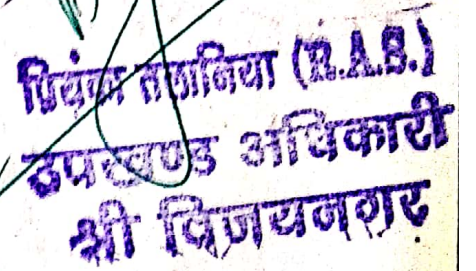 प्रियंका तलानिया (R.A.S.)
उपखण्ड अधिकारी
श्री विजयनगर